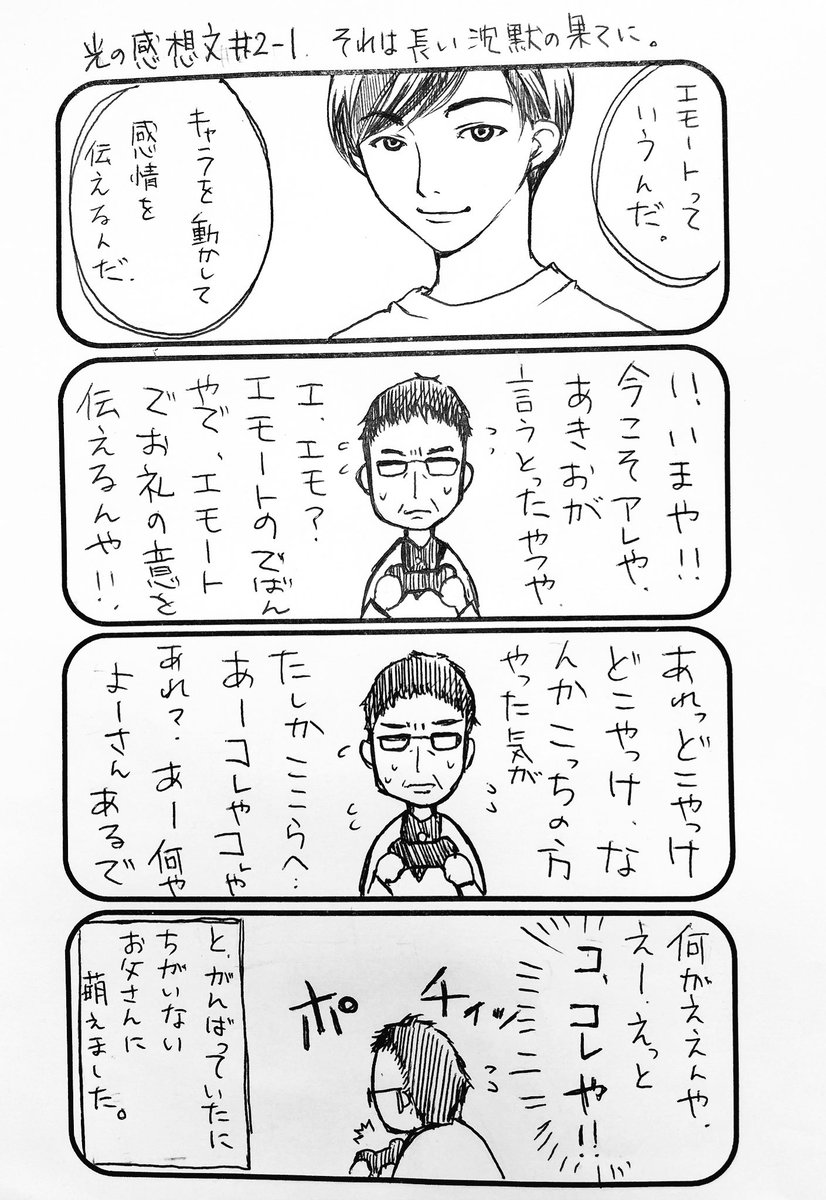 光の感想文#2-1. それは長い沈黙の果てに。
エモートって
いうんだ。
キャラを動かして
感情を
伝えるんだ.
い、いまや!!
今こそアレや.
あきおが
言うとったやつや.
エ、エモ?
エモートのでばん
やで、エモート
でお礼の意を
伝えるんや!!
あれっどこやっけ
どこやっけ、な
んかこっちの方
やった気が
たしかここらへ…
あーコレやコレや
あれ?.あー何や
よーさんあるで
何がええんや.
えー.えっと
コ、コレや!!
ポチィッ
と、がんばっていたに
ちがいない
お父さんに
萌えました。